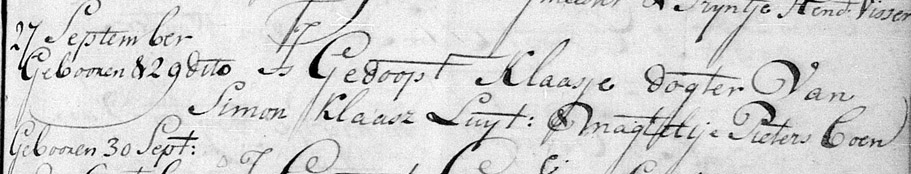 & Trijntje Hend: Visser
27 September
Gebooren & 29 dito Is Gedoopt Klaasje dogter Van
Simon Klaasz Luyt: & Magteltje Pieters Coen
Gebooren 30 Sept: